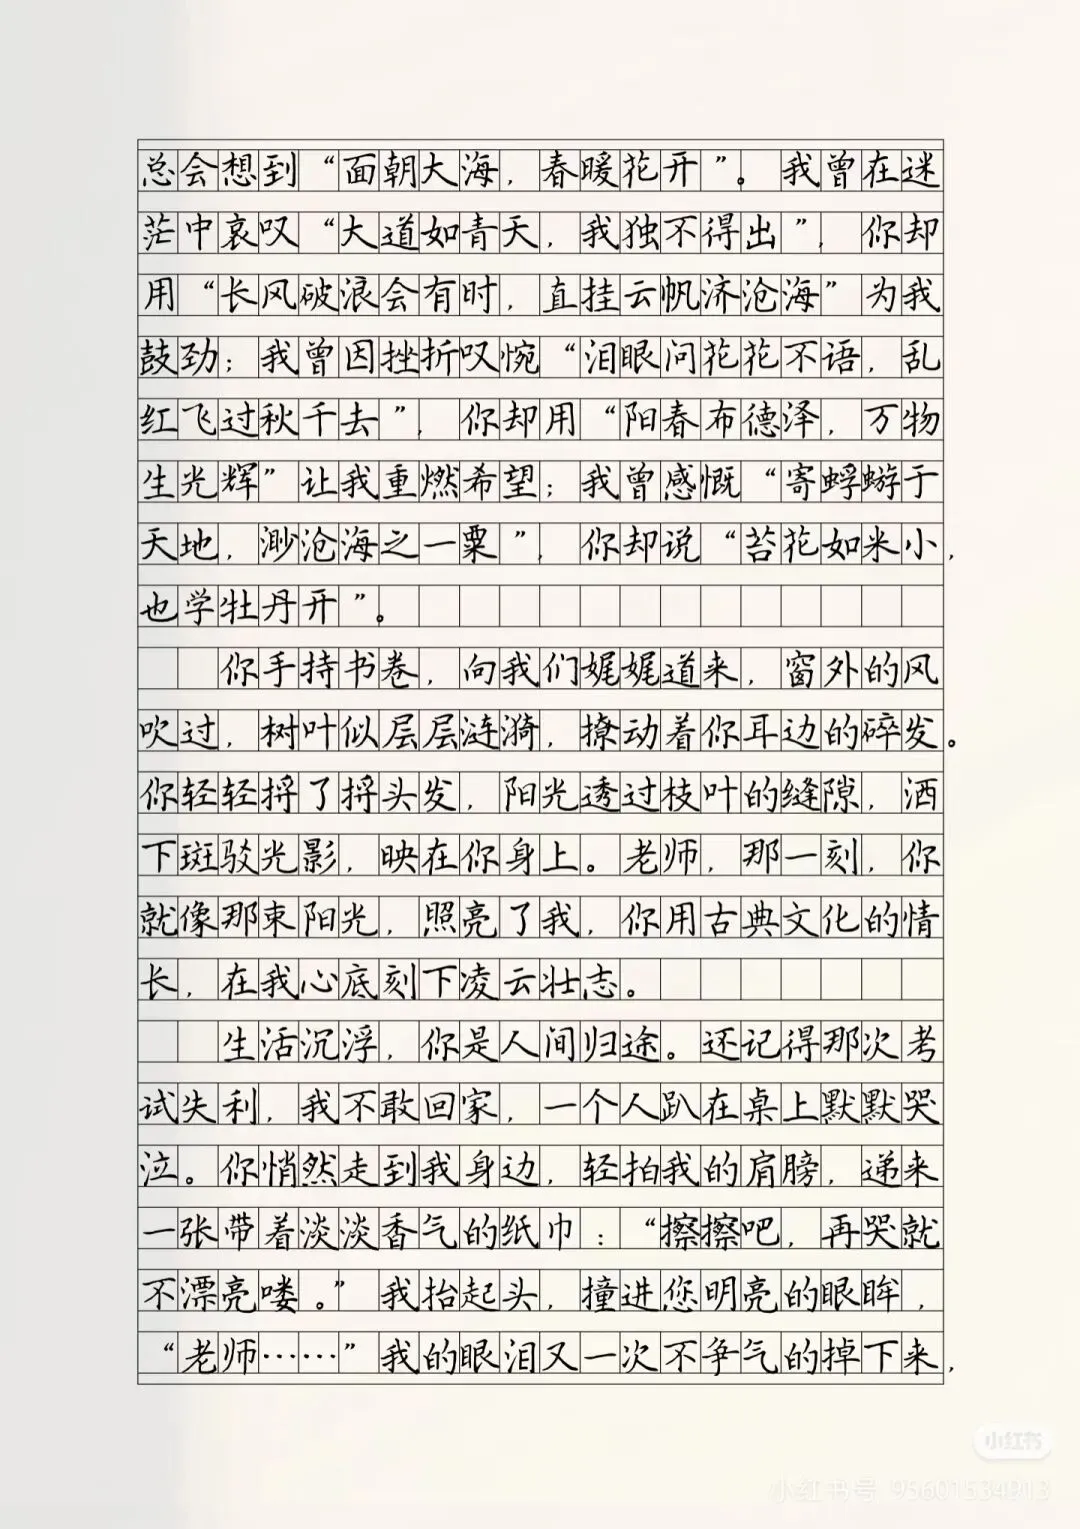 总会想到“面朝大海，春暖花开”。我曾在迷
茫中哀叹“大道如青天，我独不得出”，你却
用“长风破浪会有时，直挂云帆济沧海”为我
鼓劲；我曾因挫折叹惋“泪眼问花花不语，乱
红飞过秋千去”，你却用“阳春布德泽，万物
生光辉”让我重燃希望；我曾感慨“寄蜉蝣于
天地，渺沧海之一粟”，你却说“苔花如米小，
也学牡丹开”。
你手持书卷，向我们娓娓道来，窗外的风
吹过，树叶似层层涟漪，撩动着你耳边的碎发。
你轻轻捋了捋头发，阳光透过枝叶的缝隙，洒
下斑驳光影，映在你身上。老师，那一刻，你
就像那束阳光，照亮了我，你用古典文化的情
长，在我心底刻下凌云壮志。
生活沉浮，你是人间归途。还记得那次考
试失利，我不敢回家，一个人趴在桌上默默哭
泣。你悄然走到我身边，轻拍我的肩膀，递来
一张带着淡淡香气的纸巾：“擦擦吧，再哭就
不漂亮喽。”我抬起头，撞进您明亮的眼眸，
“老师……”我的眼泪又一次不争气的掉下来，
小红书
小红书号 95601534913